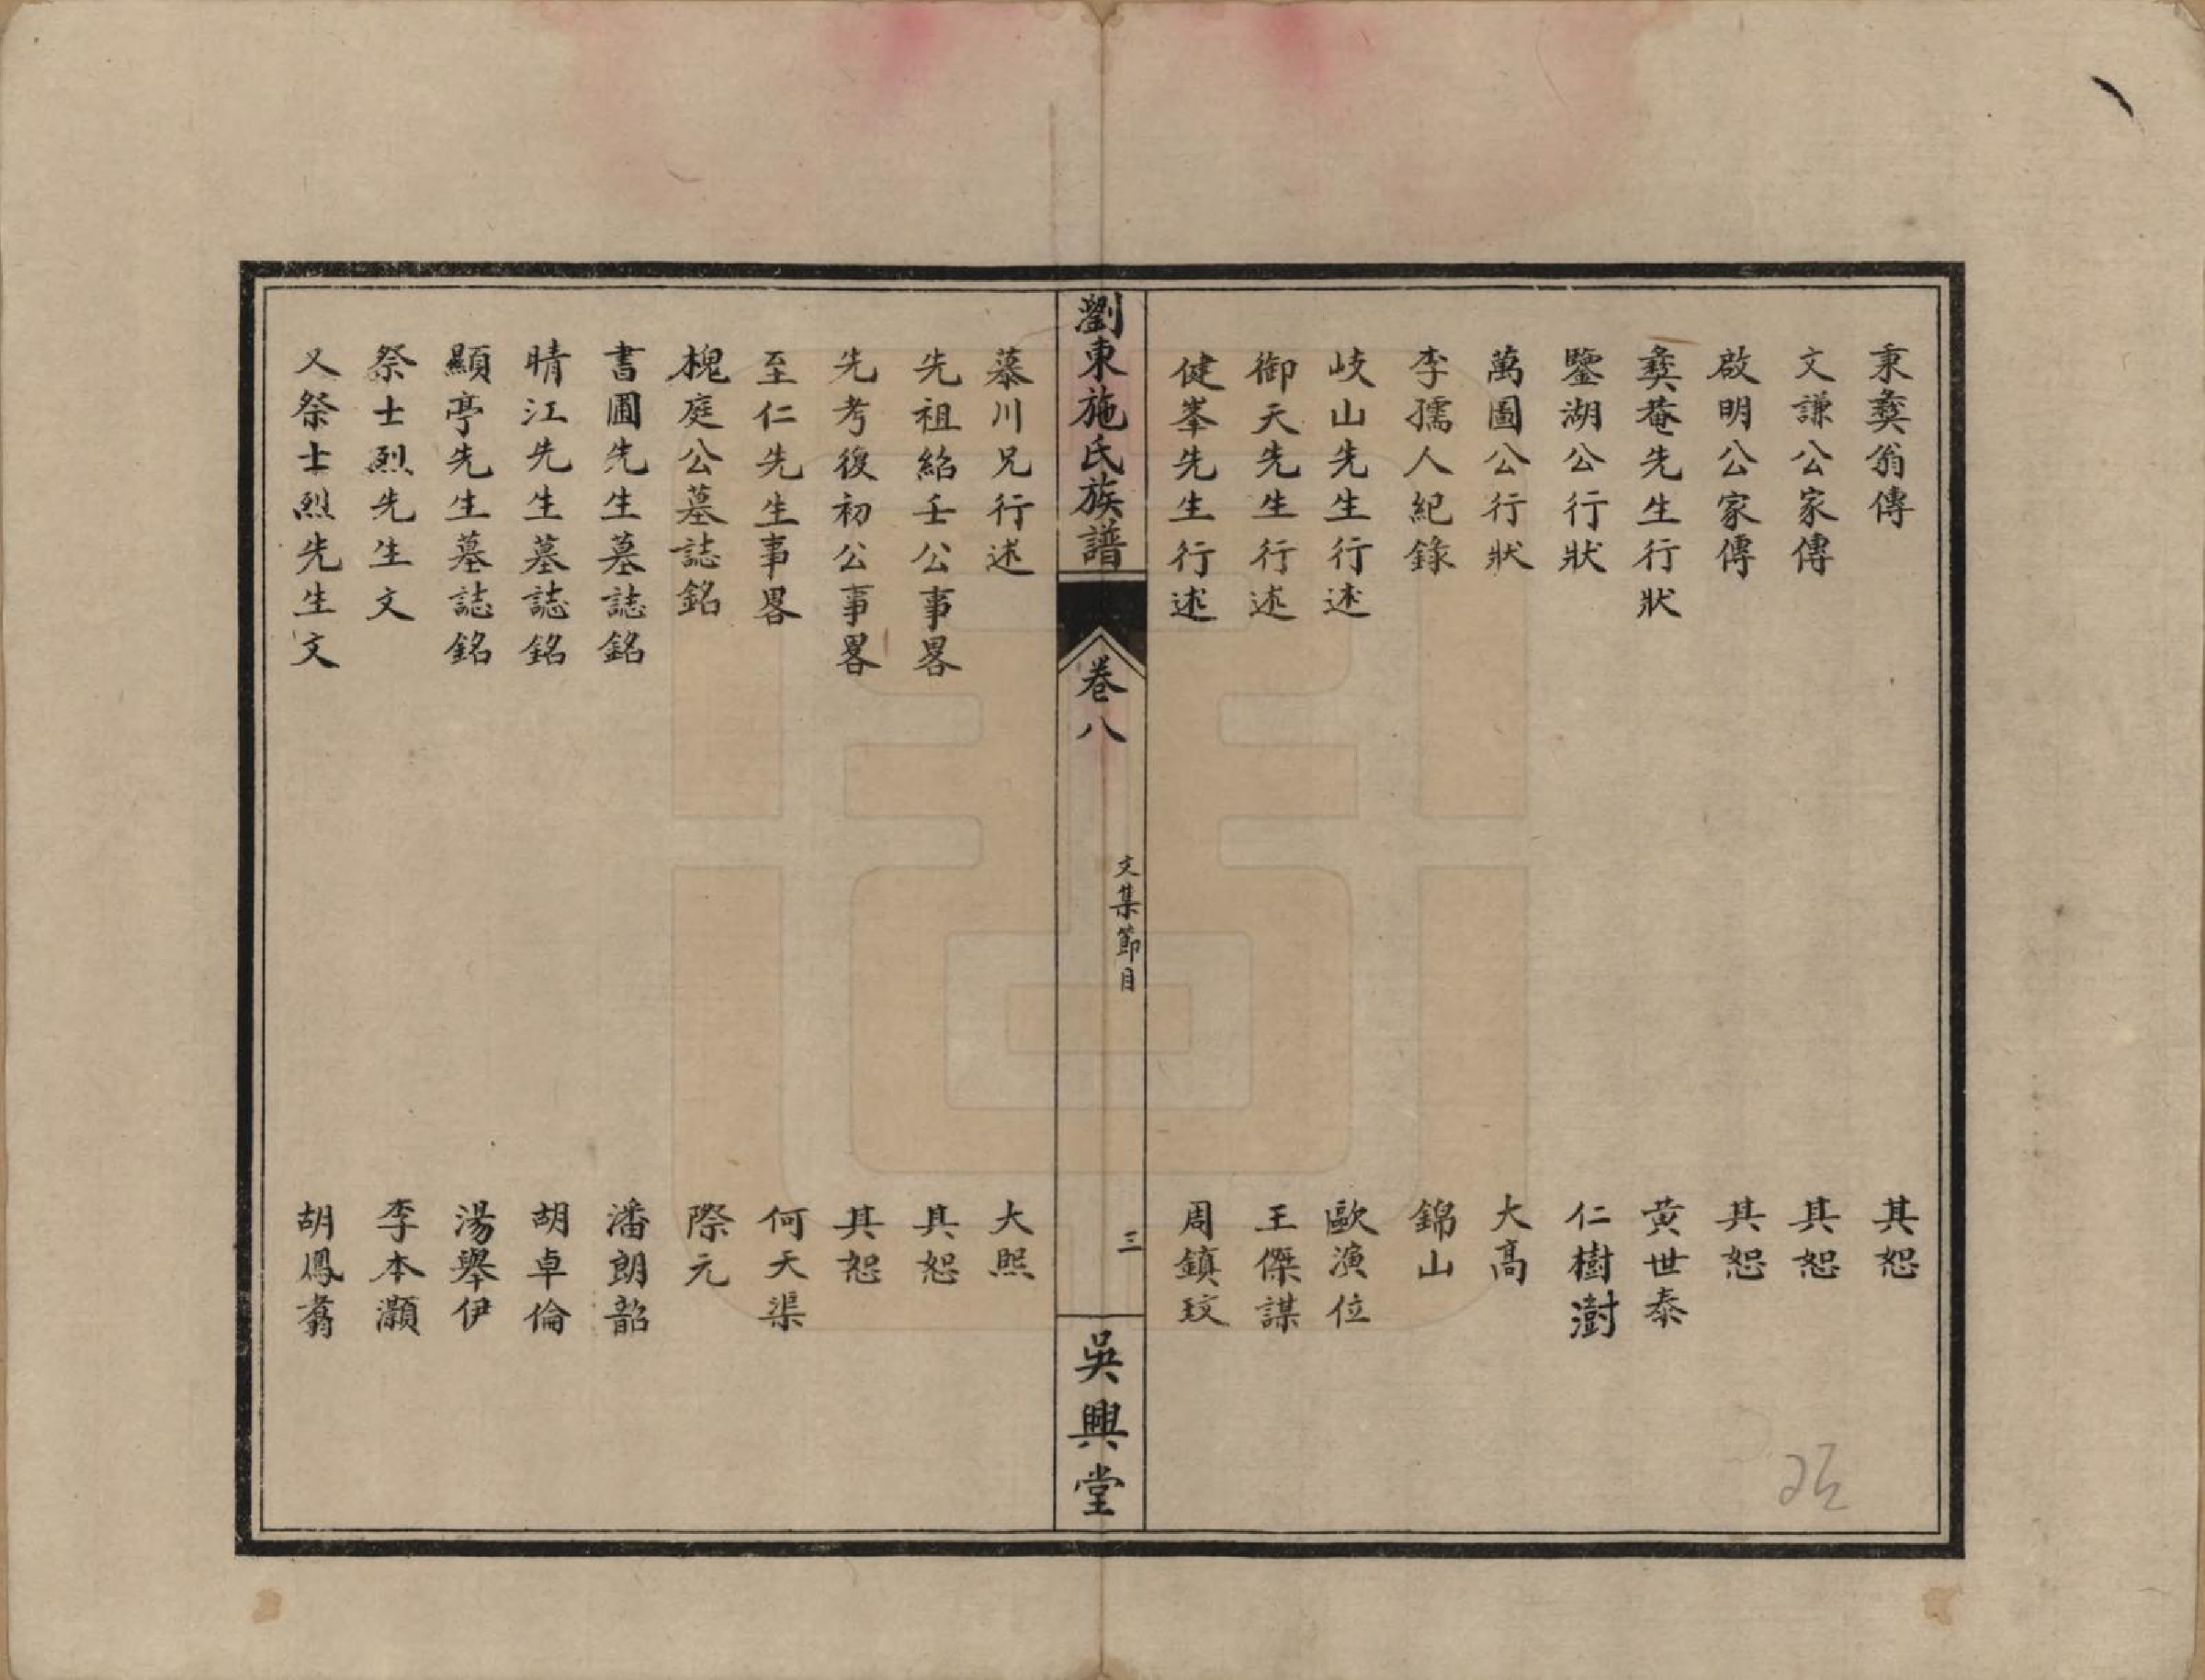 秉彝翁傳　其恕
文謙公家傳　其恕
啟明公家傳　其恕
彝菴先生行狀　黃世泰
鑒湖公行狀　仁樹澍
萬圖公行狀　大高
李孺人紀錄　錦山
岐山先生行述　歐演位
御天先生行述　王傑謀
健峯先生行述　周鎮玟
劉東施氏族譜　卷八　文集節目　三　吳興堂
慕川兄行述　大熙
先祖紹壬公事畧　其恕
先考復初公事畧　其恕
至仁先生事畧　何天渠
槐庭公墓誌銘　際元
書圃先生墓誌銘　潘朗韶
晴江先生墓誌銘　胡卓倫
顯亭先生墓誌銘　湯舉伊
祭士烈先生文　李本灝
又祭士烈先生文　胡鳳翥